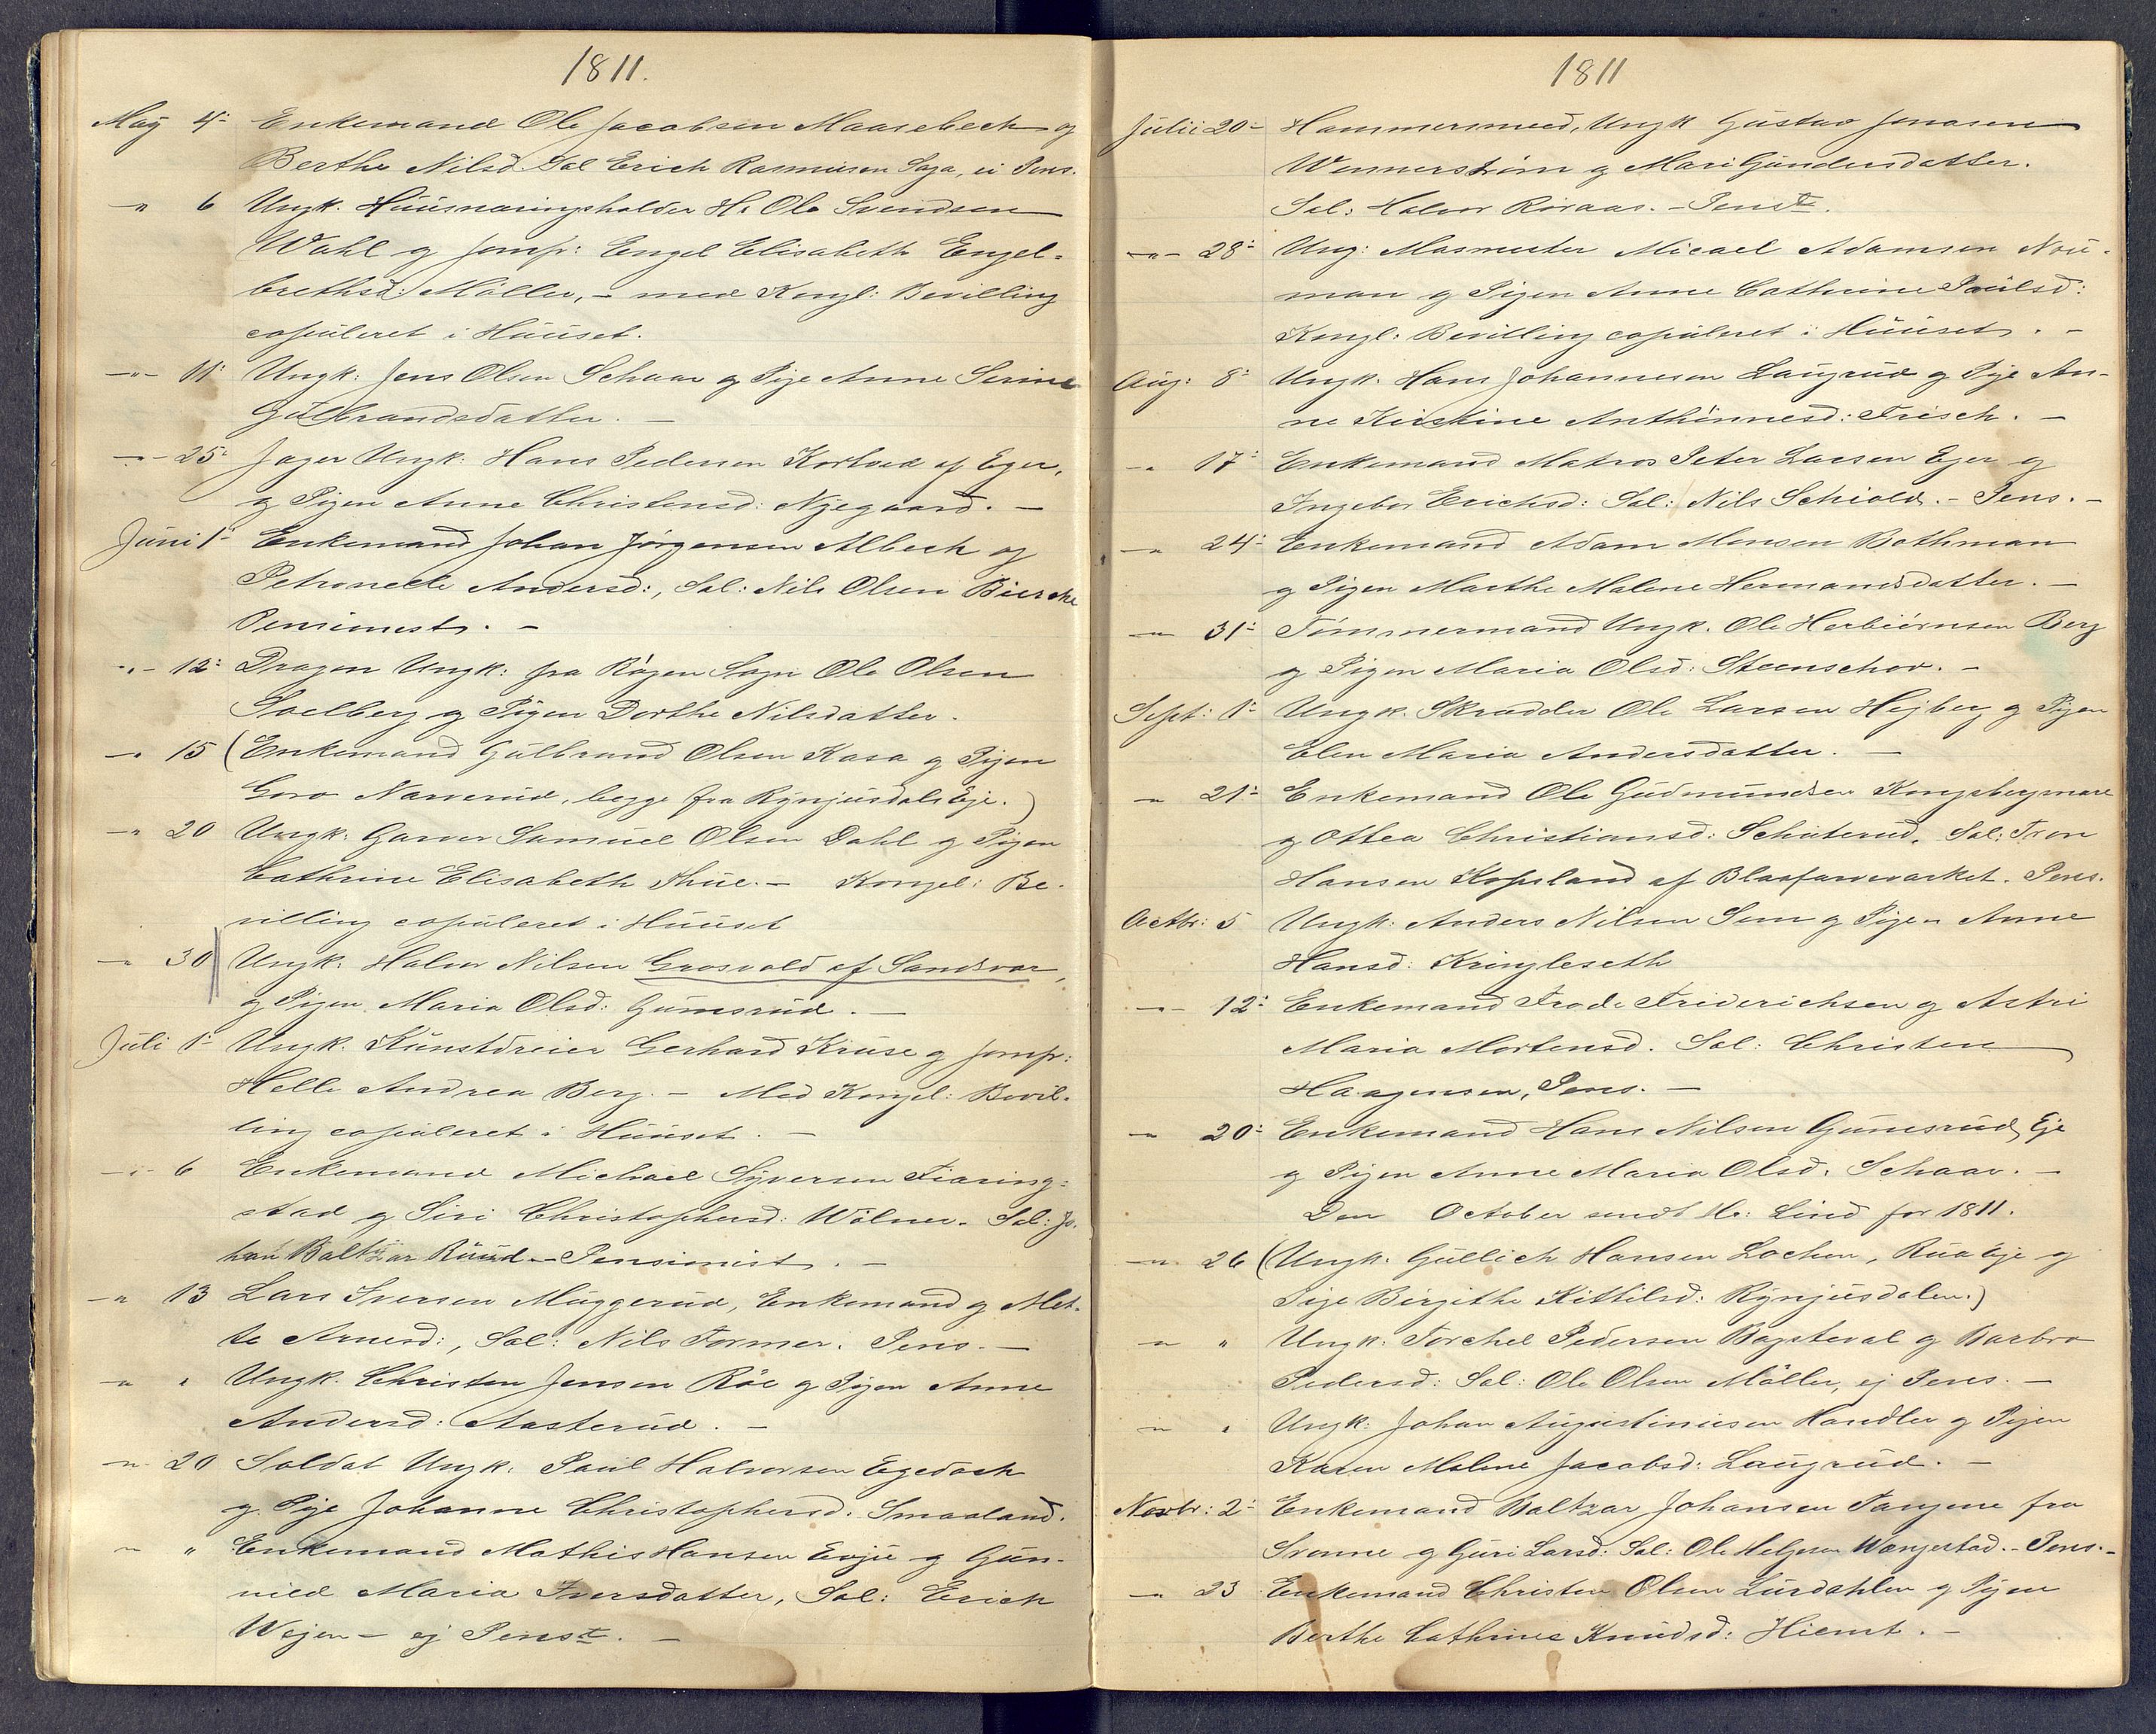 1811.
May 4: Enkemand Ole Jacobsen Maasebech og
Berthe Nilsd. Sal Erich Rasmusen Saga, ei Pens.
" 6 Ungk. Huusnæringsholder Hr Ole Svendsen
Wahl og Jomf: Engel Elisabeth Engel-
brethsd: Möller, – med Kongl: Bevilling
copuleret i Huuset.
-"- 11: Ungk: Jens Olsen Schaar og Pige Anne Serine
Gulbrandsdatter. –
-"- 25: Jager Ungk: Hans Pedersen Kortved af Eger,
og Pigen Anne Christensd: Nygaard. –
Juni 1: Enkemand Johan Jörgensen Albech og
Petronelle Andersd:, Sal: Nils Olsen Biercke
Pensionist. –
-"- 12: Dragon Ungk: fra Rögen Sogn Ole Olsen
Soelberg og Pigen Dorthe Nilsdatter.
-" 15 (Enkemand Gulbrand Olsen Kasa og Pigen
Goro Narverud, begge fra Rynjusdals Eje.)
-" 20 Ungk: Garver Samuel Olsen Dahl og Pigen
Cathrine Elisabeth Thue. – Kongel: Be-
villing copuleret i Huuset
-" 30 Ungk: Halvor Nilsen Grosvold af Sandsvær,
og Pigen Maria Olsd: Gumsrud. –
Juli 1: Ungk. Kunstdreier Gerhard Kruse og Jomf:
Helle Andrea Berg. – Med Kongel: Bevil-
ling copuleret i Huuset. –
-"- 6 Enkemand Michael Syversen Tiaring-
stad og Siri Christophersd: Wölner. Sal: Jo-
han Baltzar Ruud – Pensionist. –
-" 13 Lars Iversen Muggerud, Enkemand og Met-
te Arnesd:, Sal: Nils Former. Pens. –
-" " Ungk. Christen Jensen Röe og Pigen Anne
Andersd: Aasterud. –
-" 20 Soldat Ungk: Paul Halvorsen Egedock
og Pige Johanne Christophersd: Smaaland.
-" " Enkemand Mathis Hansen Evju og Gun-
nild Maria Iversdatter, Sal: Erich
Wejen – ej Penst. –
1811
Julii 20: Hammersmed, Ungk Gustav Jonasen
Wennerström og Mari Gundersdatter.
Sal: Halvor Röraas. – Penst.
-"- 28: Ung: Masmester Micael Adamsen Neu-
man og Pigen Anne Cathrine Poulsd:
Kongl: Bevilling copuleret i Huuset. –
Aug: 8: Ungk. Hans Johannesen Laugrud og Pige An-
ne Kirstine Anthönnesd: Frisch. –
-" 17: Enkemand Matros Peter Larsen Eger og
Ingebor Erichsd: Sal: Nils Schiold. – Pens. –
-" 24: Enkemand Adam Monsen Bothman
og Pigen Marthe Malene Hermandsdatter. –
-" 31: Tömmermand Ungk. Ole Herbiörnsen Berg
og Pigen Maria Olsd: Steenschov. –
Sept: 1: Ungk. Skradder Ole Larsen Hejberg og Pigen
Elen Maria Andersdatter. –
-" 21: Enkemand Ole Gudmundsen Kongsbergmare
og Othea Christiansd: Schuterud, Sal: Tron
Hansen Kopsland af Blaafarveværket. Pens.
Octbr: 5 Ungk. Anders Nilsen Sem og Pigen Anne
Hansd: Kringleseth
-"- 12: Enkemand Frode Friderichsen og Astri
Maria Mortensd. Sal: Christen
Haagensen, Pens. –
-" 20: Enkemand Hans Nilsen Gumsrud Eje
og Pigen Anne Maria Olsd. Schaar. –
Den October sendt Hr: Lind for 1811.
-" 26 (Ungk. Gullich Hansen Lochen, Rua Eje og
Pige Birgithe Kittilsd: Rynjusdalen.)
-" " Ungk. Torchel Pedersen Bagsteval og Barbro
Pedersd: Sal: Ole Olsen Möller, ej Pens. –
-" " Ungk: Johan Augustinusen Handler og Pigen
Karen Malene Jacobsd: Laugrud. –
Novbr: 2: Enkemand Baltzar Johansen Tangene fra
Svenne og Guri Larsd: Sal: Ole Helgesen Wangestad. – Pens. –
-" 23 Enkemand Christen Olsen Lurdahlen og Pigen
Berthe Cathrine Knudsd: Hiemt. –